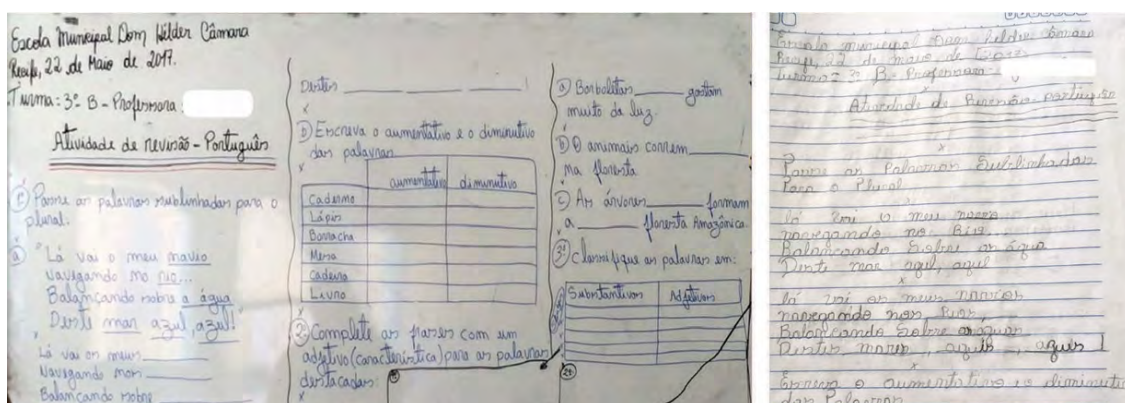 Escola Municipal Dom Hélder Câmara
Recife, 22 de Maio de 2017.
Turma: 3º B - Professora:
Atividade de revisão - Português
1º Passe as palavras sublinhadas para o
plural.
a) "Lá vai o meu navio
Navegando no rio...
Balançando sobre a água
Deste mar azul, azul!"
Lá vai os meus ______
Navegando nos ______
Balançando sobre ______
Destes ______ ______ ______!
b) Escreva o aumentativo e o diminutivo
das palavras
aumentativo diminutivo
Caderno
Lápis
Borracha
Mesa
Cadeira
Livro
2º Complete as frases com um
adjetivo (característica) para as palavras
destacadas:
a) Borboletas ______ gostam
muito da luz.
b) O animais correm ______
na floresta.
c) As árvores ______ formam
a ______ floresta Amazônica.
3º Classifique as palavras em:
Substantivos Adjetivos
Escola municipal Dom helder Câmara
Recife, 22 de maio de
turma = 3º B - Professora:
Atividade de Revisão - português
Passe as Palavras Sublinhadas
Para o Plural
lá vai o meu
navegando no Rio...
Balancando Sobre as água
Deste mar azul, azul
lá vai os meus navios
navegando nos Rios,
Balancando Sobre
Destes mares, azuis, azuis!
Escreva o aumentativo e o diminutivo
das Palavras